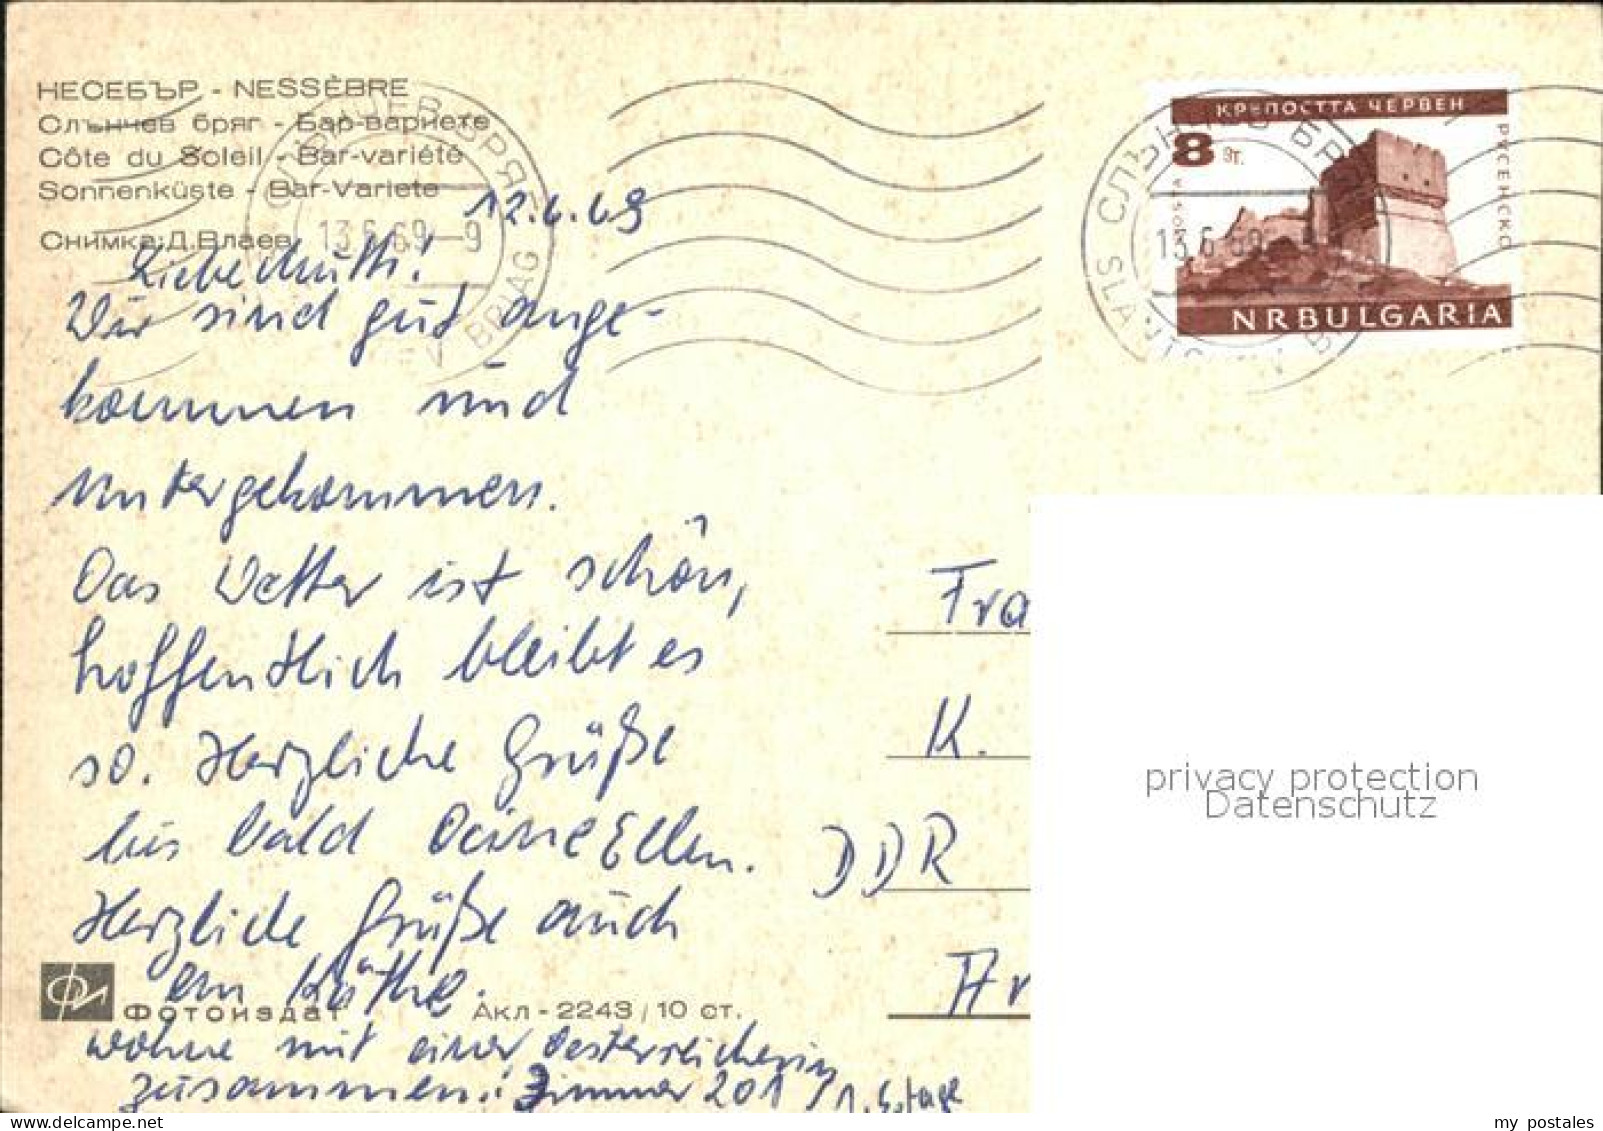 НЕСЕБЪР - NESSÈBRE
Слънчев бряг - Бар-вариете
Côte du Soleil - Bar-variété
Sonnenküste - Bar-Variete
Снимка: Д. Влаев
13.6.69-9
BRIAG
12.6.69
КРЕПОСТТА ЧЕРВЕН
8 Чт.
ПОЩА
РУСЕНСКО
NRBULGARIA
СЛЪНЧЕВ БРЯГ
13.6.69
Liebe Mutti!
Wir sind gut ange-
kommen und
untergekommen.
Das Wetter ist schön,
hoffentlich bleibt es
so. Herzliche Grüße
bis bald Deine Ellen.
Herzliche Grüße auch
an Käthe.
wohne mit einer Oesterreicherin
zusammen! Zimmer 201/1. Etage
Фотоиздат
Акл - 2243 / 10 ст.
Fra
K.
DDR
Ar
privacy protection
Datenschutz
my postales